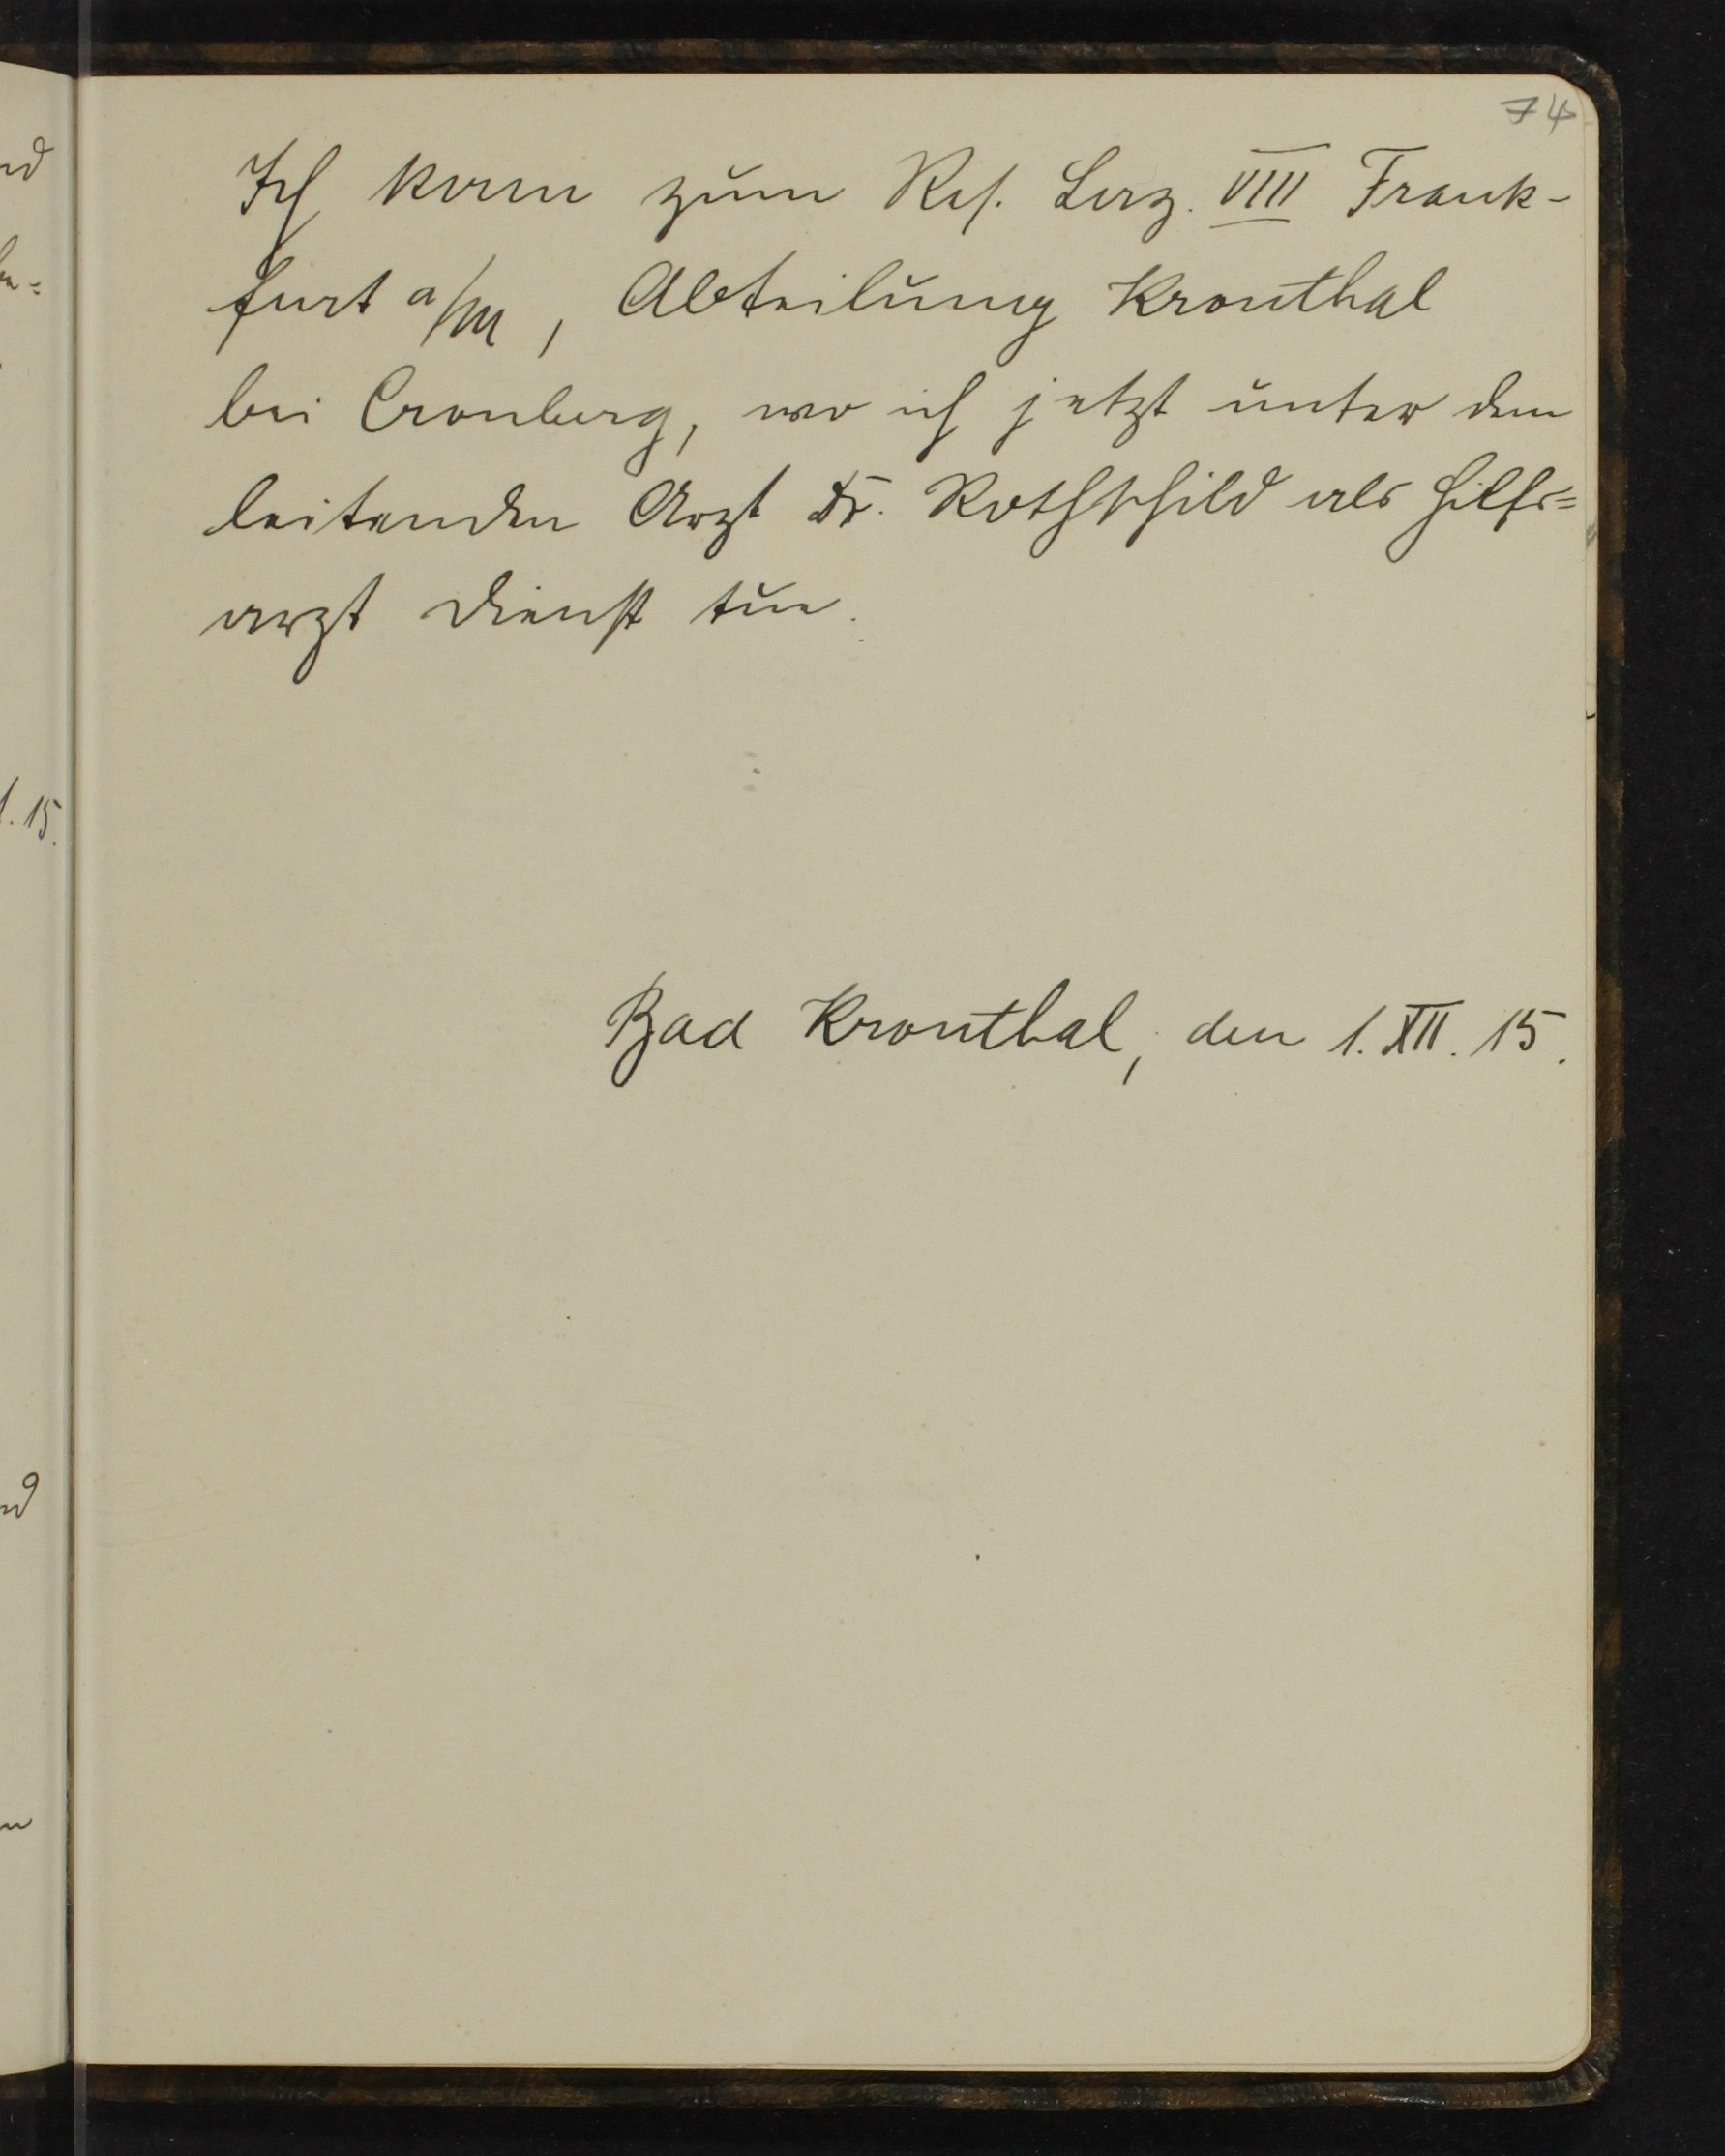 74
Ich kam zum Res. Laz. VIII Frank-
furt a/M, Abteilung Kronthal
bei Cronberg, wo ich jetzt unter dem
leitenden Arzt Dr. Rothschild als Hilfs=
arzt Dienst tue.
1. 15.
Bad Kronthal, den 1. XII. 15.